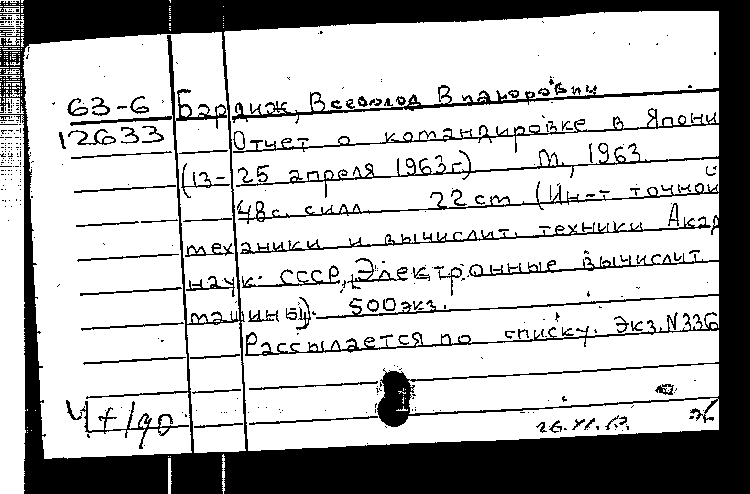 63-6 Бардиж, Всеволод Винанорович
12633 Отчет о командировке в Япони
(13-25 апреля 1963г) М., 1963
48с. с илл. 22 cm (Ин-т точной
механики и вычислит. техники Акад
наук. СССР, Электронные вычислит.
машины). 500экз.
Рассылается по списку. Экз. N336
26.XI.63